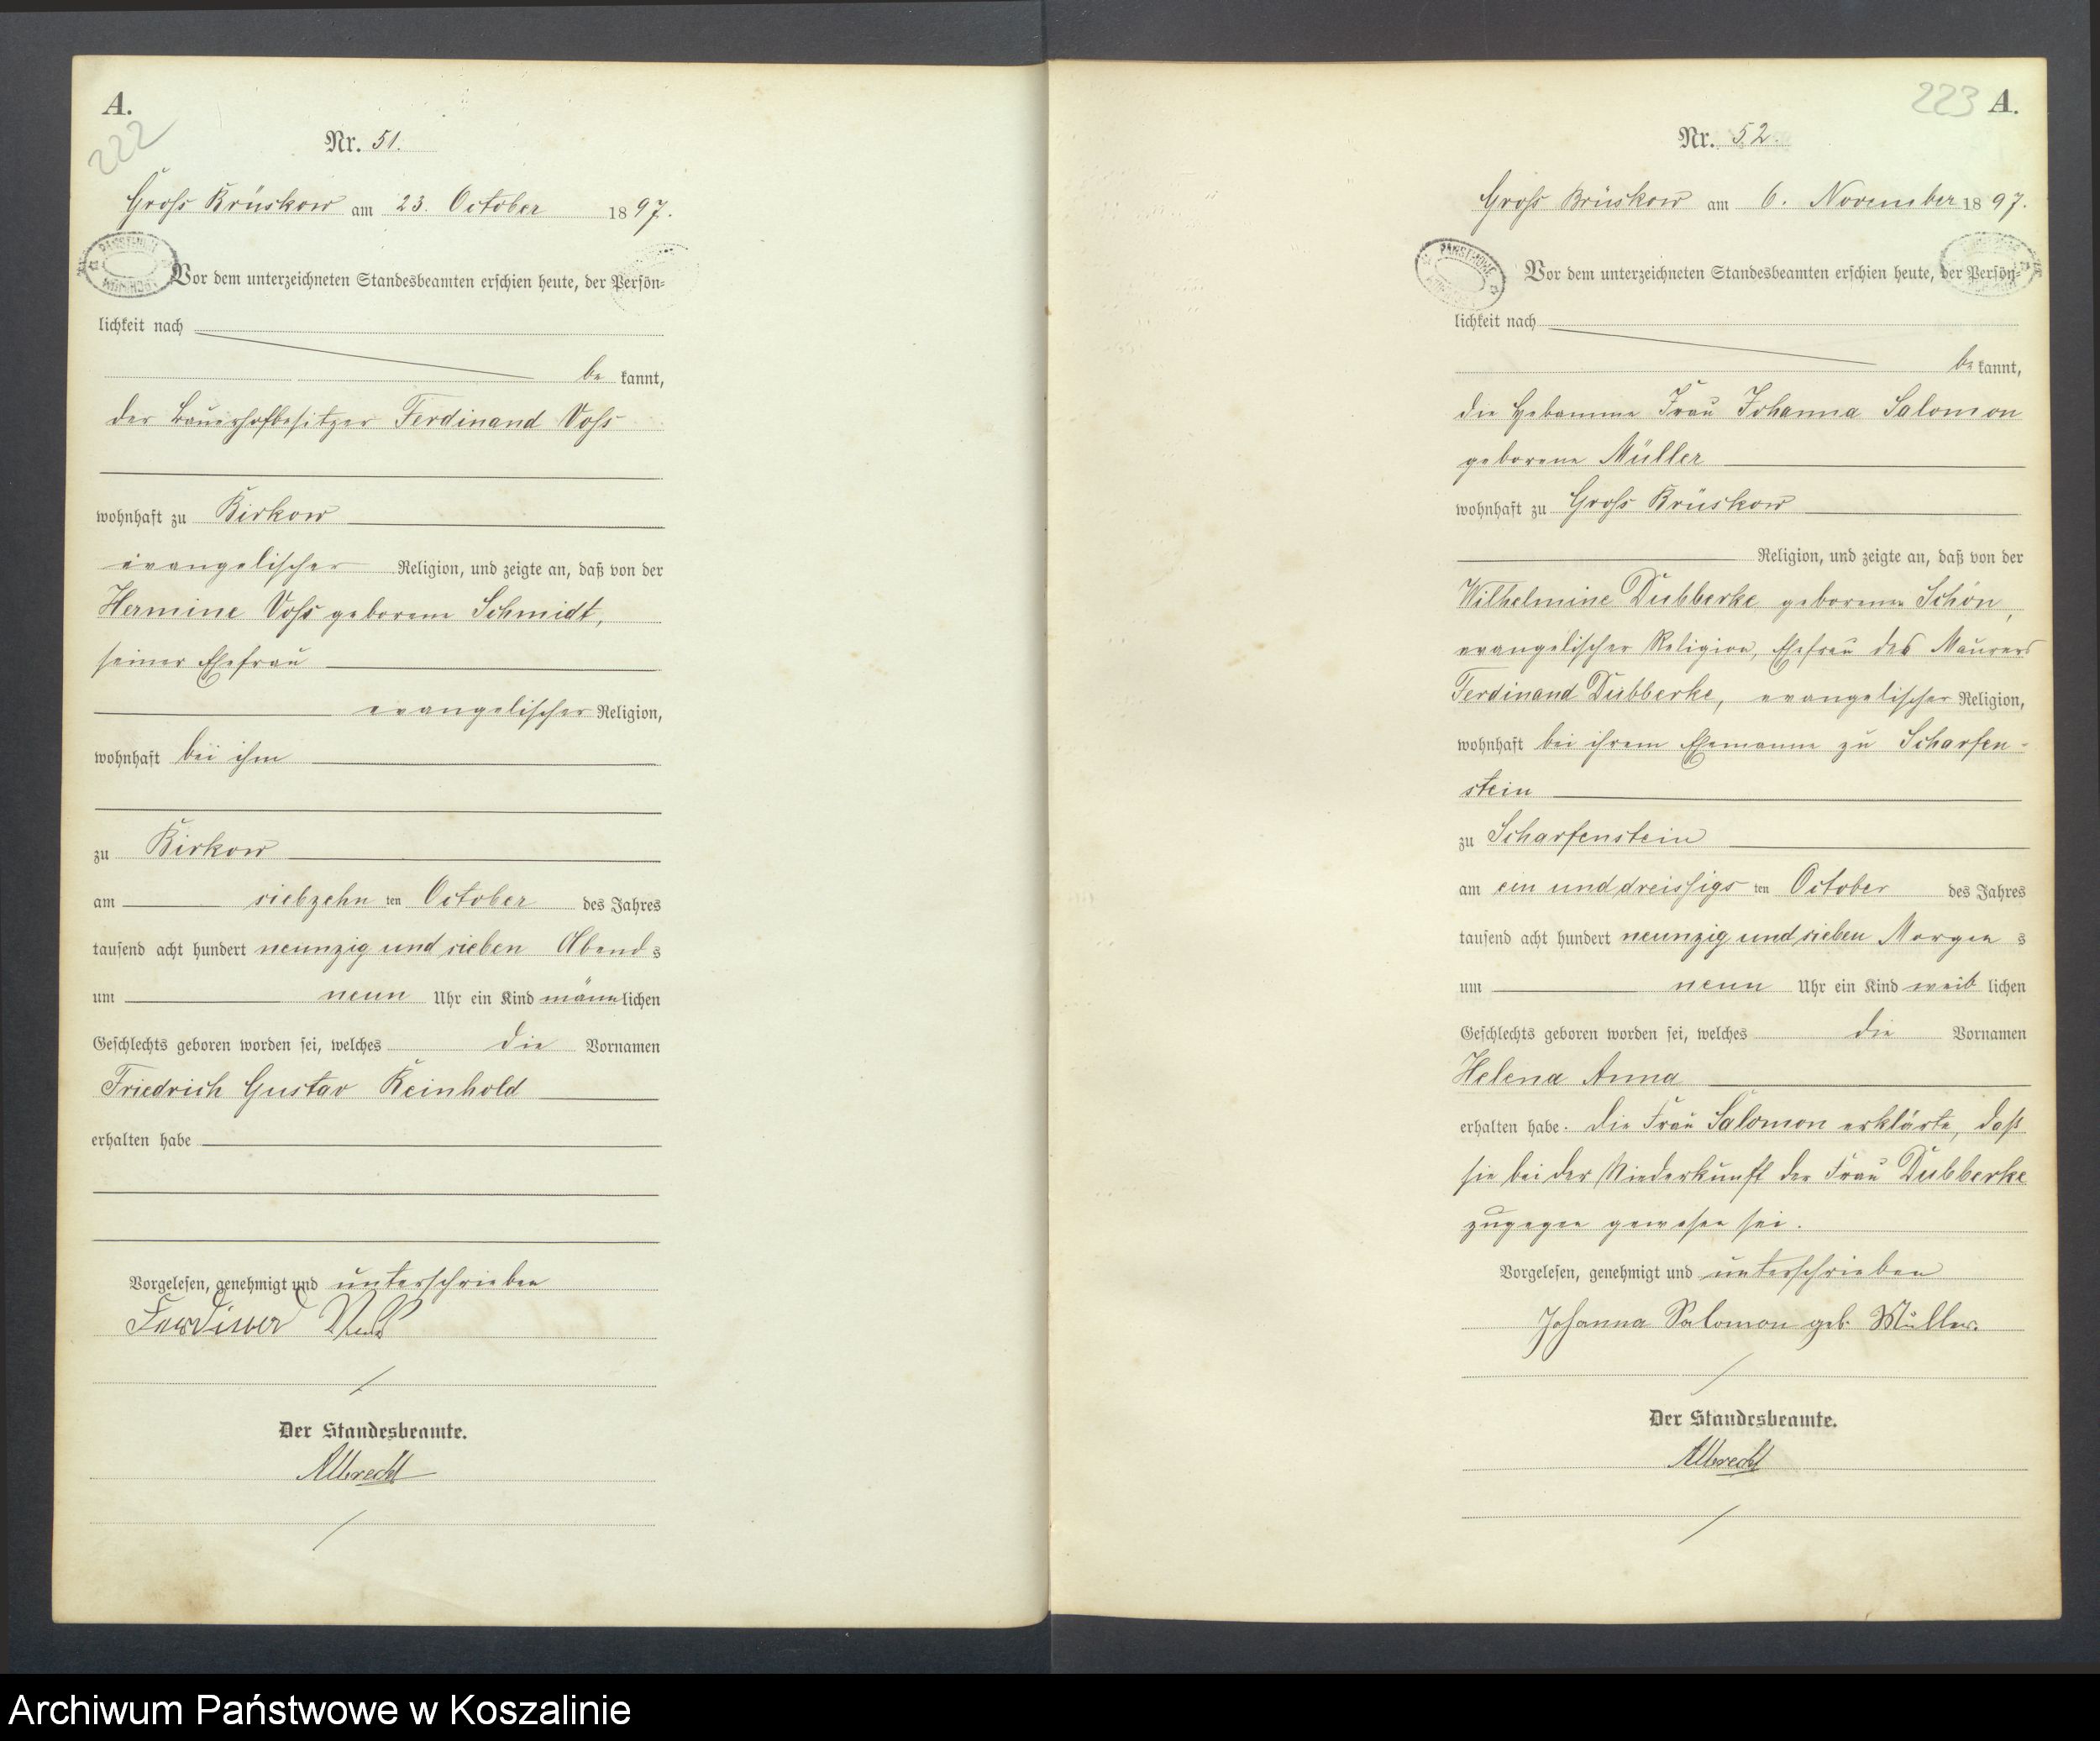 A.
222
Nr. 51.
Gross Brüskow am 23. October 1897.
Vor dem unterzeichneten Standesbeamten erschien heute, der Persön-
lichkeit nach
be kannt,
der Bauerhofbesitzer Ferdinand Voss
wohnhaft zu Birkow
evangelischer Religion, und zeigte an, daß von der
Hermine Voss geborene Schmidt,
seiner Ehefrau
evangelischer Religion,
wohnhaft bei ihm
zu Birkow
am siebzehn ten October des Jahres
tausend acht hundert neunzig und sieben Abend s
um neun Uhr ein Kind männlichen
Geschlechts geboren worden sei, welches die Vornamen
Friedrich Gustav Reinhold
erhalten habe
Vorgelesen, genehmigt und unterschrieben
Ferdinand Voss
Der Standesbeamte.
Albrecht
223 A.
Nr. 52.
Gross Brüskow am 6. November 1897.
Vor dem unterzeichneten Standesbeamten erschien heute, der Persön-
lichkeit nach
be kannt,
die Hebamme Frau Johanna Salomon
geborene Müller
wohnhaft zu Gross Brüskow
Religion, und zeigte an, daß von der
Wilhelmine Dubberke geborenen Schön,
evangelischer Religion, Ehefrau des Maurers
Ferdinand Dubberke, evangelischer Religion,
wohnhaft bei ihrem Ehemanne zu Scharfen-
stein
zu Scharfenstein
am ein und dreissigs ten October des Jahres
tausend acht hundert neunzig und sieben Morgen s
um neun Uhr ein Kind weib lichen
Geschlechts geboren worden sei, welches die Vornamen
Helena Anna
erhalten habe. Die Frau Salomon erklärte, daß
sie bei der Niederkunft der Frau Dubberke
zugegen gewesen sei.
Vorgelesen, genehmigt und unterschrieben
Johanna Salomon geb. Müller.
Der Standesbeamte.
Albrecht
Archiwum Państwowe w Koszalinie